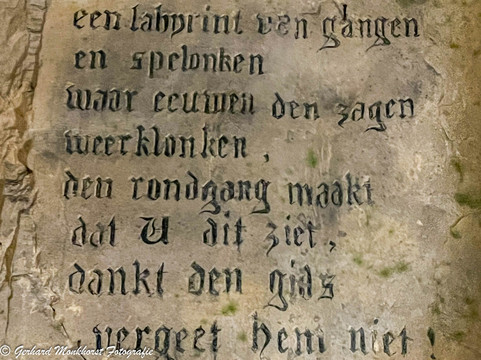 een labyrint van gangen
en spelonken
waar eeuwen den zagen
weerklonken,
den rondgang maakt
dat U dit ziet,
dankt den gids
, vergeet hem niet!
© Gerhard Monkhorst Fotografie